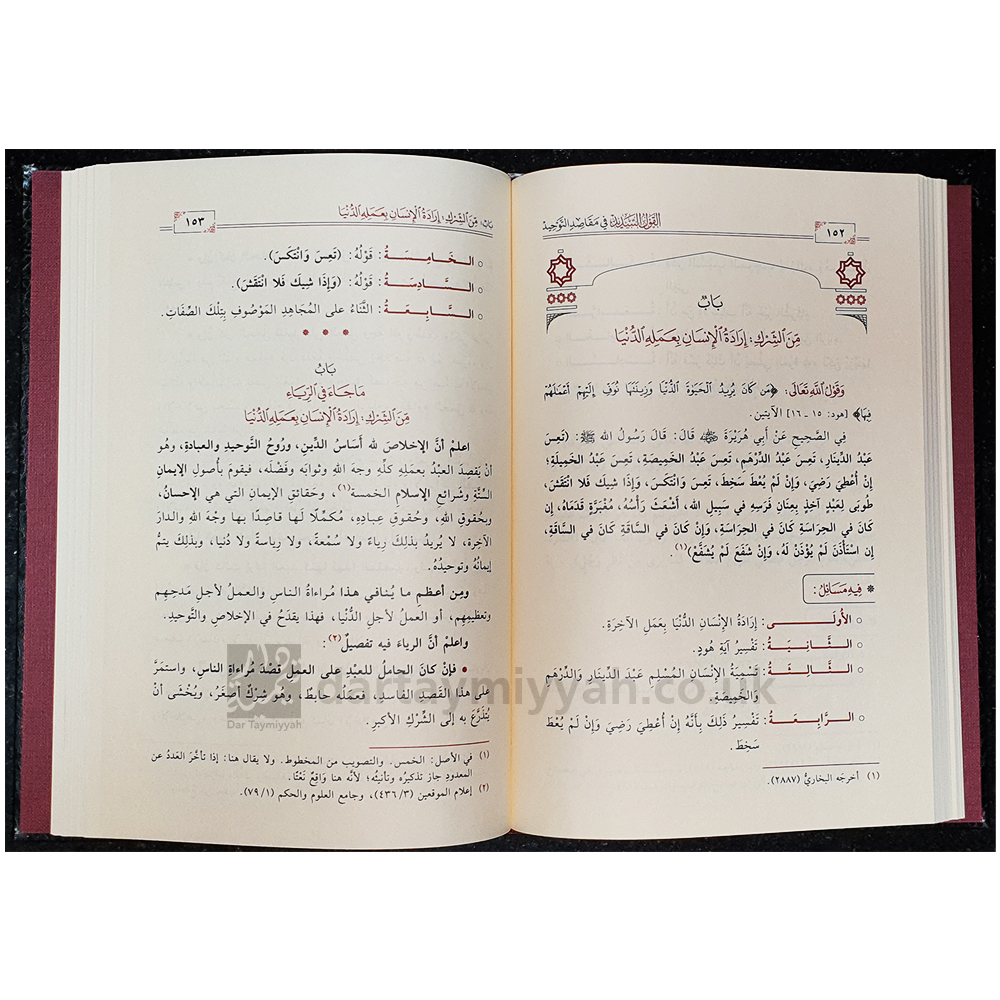 ١٥٢
القول السديد في مقاصد التوحيد
بَابٌ
مِّنَ الشِّرْكِ: إِرَادَةُ الْإِنسَانِ بِعَمَلِهِ الدُّنْيَا
وَقَوْلُ اللَّهِ تَعَالَى: ﴿مَن كَانَ يُرِيدُ الْحَيَوٰةَ الدُّنْيَا وَزِينَتَهَا نُوَفِّ إِلَيْهِمْ أَعْمَٰلَهُمْ
فِيهَا﴾ [هود: ١٥ - ١٦] الآيتين.
فِي الصَّحِيحِ عَنْ أَبِي هُرَيْرَةَ ﵁ قَالَ: قَالَ رَسُولُ اللهِ ﷺ: (تَعِسَ
عَبْدُ الدِّينَارِ، تَعِسَ عَبْدُ الدِّرْهَمِ، تَعِسَ عَبْدُ الخَمِيصَةِ، تَعِسَ عَبْدُ الخَمِيلَةِ؛
إِنْ أُعْطِيَ رَضِيَ، وَإِنْ لَمْ يُعْطَ سَخِطَ، تَعِسَ وَانْتَكَسَ، وَإِذَا شِيكَ فَلَا انْتَقَشَ،
طُوبَى لِعَبْدٍ آخِذٍ بِعِنَانِ فَرَسِهِ فِي سَبِيلِ الله، أَشْعَثَ رَأْسُهُ، مُغْبَرَّةٍ قَدَمَاهُ، إِن
كَانَ فِي الحِرَاسَةِ كَانَ فِي الحِرَاسَةِ، وَإِنْ كَانَ فِي السَّاقَةِ كَانَ فِي السَّاقَةِ،
إِن اسْتَأْذَنَ لَمْ يُؤْذَنْ لَهُ، وَإِنْ شَفَعَ لَمْ يُشَفَّعْ)(١).
* فِيهِ مَسَائِلُ:
○ الأُولَـــى: إِرَادَةُ الإِنْسَانِ الدُّنْيَا بِعَمَلِ الآخِرَةِ.
○ الثَّـانِيَـةُ: تَفْسِيرُ آيَةِ هُودٍ.
○ الثَّـالِثَـةُ: تَسْمِيَةُ الإِنْسَانِ المُسْلِمِ عَبْدَ الدِّينَارِ وَالدِّرْهَمِ
وَالخَمِيصَةِ.
○ الـرَّابِـعَـةُ: تَفْسِيرُ ذَلِكَ بِأَنَّهُ إِنْ أُعْطِيَ رَضِيَ وَإِنْ لَمْ يُعْطَ
سَخِطَ.
(١) أخرجَه البخاريُّ (٢٨٨٧).
بَابٌ: مِّنَ الشِّرْكِ: إِرَادَةُ الْإِنسَانِ بِعَمَلِهِ الدُّنْيَا
١٥٣
○ الـخَـامِـسَـةُ: قَوْلُهُ: (تَعِسَ وَانْتَكَسَ).
○ الـسَّـادِسَـةُ: قَوْلُهُ: (وَإِذَا شِيكَ فَلَا انْتَقَشَ).
○ الـسَّـابِـعَـةُ: الثَّنَاءُ عَلَى المُجَاهِدِ المَوْصُوفِ بِتِلْكَ الصِّفَاتِ.
* * *
بَابُ
مَا جَاءَ فِي الرِّيَاءِ
مِّنَ الشِّرْكِ: إِرَادَةُ الْإِنسَانِ بِعَمَلِهِ الدُّنْيَا
اعلمْ أنَّ الإخلاصَ لله أَسَاسُ الدِّينِ، ورُوحُ التَّوحيدِ والعبادةِ، وهُو
أنْ يَقصِدَ العبْدُ بعملِه كلِّه وجهَ اللهِ وثوابَه وفَضْلَه، فيقومَ بأصولِ الإيمانِ
السِّتَّةِ وشرائعِ الإسلامِ الخمسة(١)، وحقائقِ الإيمانِ التي هي الإحسانُ،
وبحُقوقِ اللهِ، وحُقوقِ عِبادِه، مُكمِّلًا لَها قاصدًا بها وجْهَ اللهِ والدارَ
الآخِرةَ، لا يُريدُ بذلِكَ رِياءً ولا سُمْعةً، ولا رِياسةً ولا دُنيا، وبذلِكَ يتمُّ
إيمانُهُ وتوحيدُهُ.
ومِن أعظمِ ما يُنافي هذا مُراءاةُ الناسِ والعملُ لأجلِ مَدحِهم
وتعظيمِهم، أو العملُ لأجلِ الدُّنْيا، فهذا يقدَحُ في الإخلاصِ والتَّوحيدِ.
واعلمْ أنَّ الرياءَ فيه تفصيلٌ(٢):
• فإنْ كانَ الحاملُ للعبْدِ على العملِ قصْدَ مُراءاةِ الناسِ، واستمَرَّ
على هذا القَصدِ الفاسدِ، فعملُه حابطٌ، وهُو شِركٌ أصغَرُ، ويُخْشَى أنْ
يُتَذَرَّعَ به إلى الشِّركِ الأكبرِ.
(١) في الأصل: الخمس. والتصويب من المخطوط. ولا يقال هنا: إذا تأخَّرَ العَددُ عن
المعدودِ جاز تذكيرُه وتأنيثُه؛ لأنَّه هنا وَاقِعٌ نَعْتًا.
(٢) إعلام الموقعين (٤٣٦/٣)، وجامع العلوم والحكم (٧٩/١).
Dar Taymiyyah
dartaymiyyah.co.uk